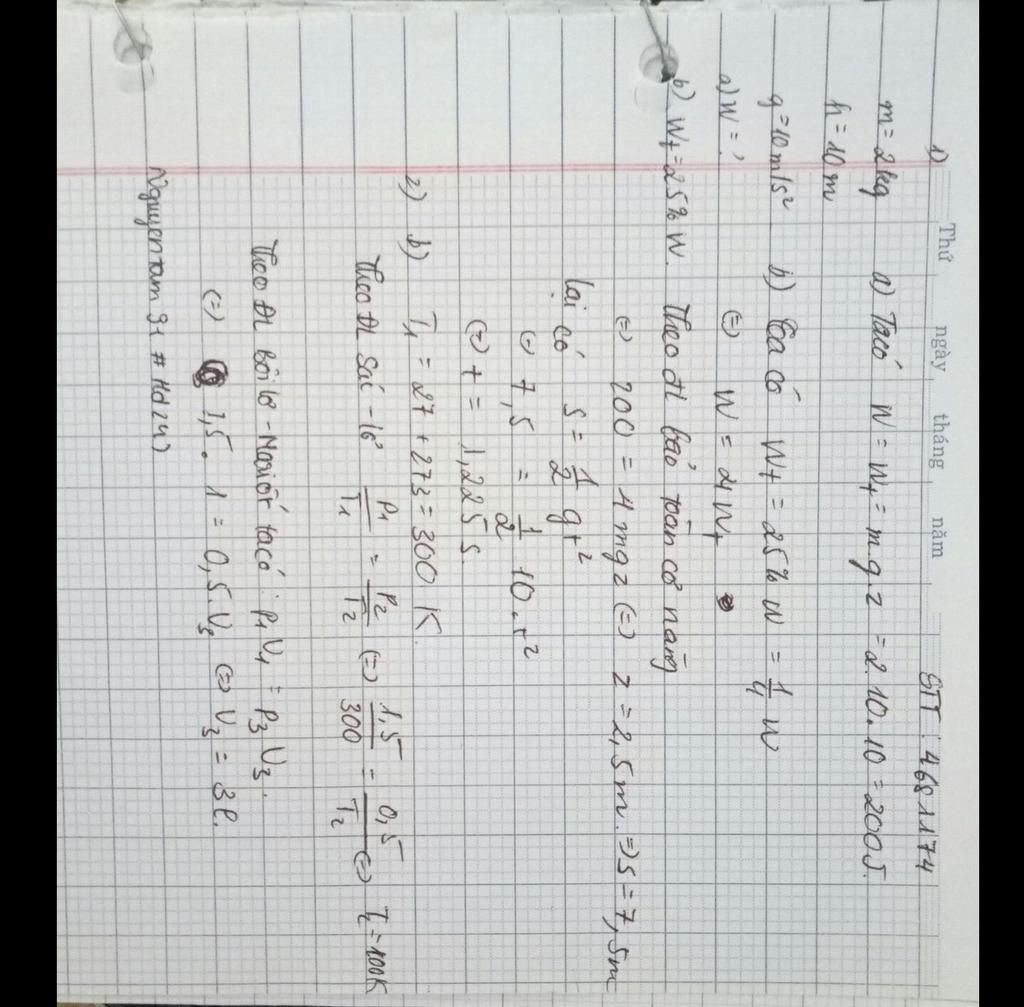 Thứ ngày tháng năm
STT: 4681174
1)
m = 2kg a) Ta có W = Wt = m.g.z = 2.10.10 = 200J.
h = 10m
g = 10m/s² b) Ta có Wt = 25% W = 1/4 W
a) W = ? (=) W = 4Wt
b) Wt = 25% W. Theo đl bảo toàn cơ năng
(=) 200 = 4mgz (=) z = 2,5m. => s = 7,5m
lại có s = 1/2 gt²
(=) 7,5 = 1/2 10.t²
(=) t = 1,225 s.
2) b) T1 = 27 + 273 = 300 K.
Theo ĐL Sác-lơ P1/T1 = P2/T2 (=) 1,5/300 = 0,5/T2 (=) T2 = 100K
Theo ĐL Bôilơ - Mariốt ta có: P1V1 = P3V3.
(=) 1,5.1 = 0,5.V3 (=) V3 = 3l.
Nguyentam91 # Hd247